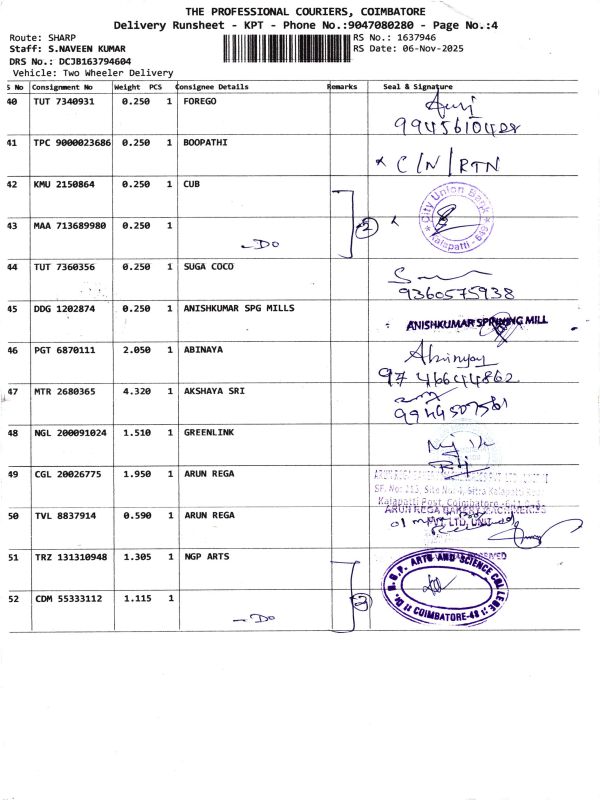 THE PROFESSIONAL COURIERS, COIMBATORE
Delivery Runsheet - KPT - Phone No.:9047080280 - Page No.:4
Route: SHARP
RS No.: 1637946
Staff: S.NAVEEN KUMAR
RS Date: 06-Nov-2025
DRS No.: DCJB163794604
Vehicle: Two Wheeler Delivery
S No Consignment No Weight PCS Consignee Details Remarks Seal & Signature
40 TUT 7340931 0.250 1 FOREGO
9945610428
41 TPC 9000023686 0.250 1 BOOPATHI
x C/N/RTN
42 KMU 2150864 0.250 1 CUB
City Union Bank
Kalapatti - 649
43 MAA 713689980 0.250 1
-Do
2
x
44 TUT 7360356 0.250 1 SUGA COCO
9360575938
45 DDG 1202874 0.250 1 ANISHKUMAR SPG MILLS
ANISHKUMAR SPINNING MILL
46 PGT 6870111 2.050 1 ABINAYA
Abinyay
9746644862
47 MTR 2680365 4.320 1 AKSHAYA SRI
9944507561
48 NGL 200091024 1.510 1 GREENLINK
49 CGL 20026775 1.950 1 ARUN REGA
SF. No: 113, Site No. 4, Sitra Kalapatti
Kalapatti Post, Coimbatore
50 TVL 8837914 0.590 1 ARUN REGA
ARUN REGA BAKERY MACHINERIES
PVT LTD, UNIT
51 TRZ 131310948 1.305 1 NGP ARTS
Dr. N.G.P. ARTS AND SCIENCE COLLEGE
COIMBATORE-48
52 CDM 55333112 1.115 1
-Do
2